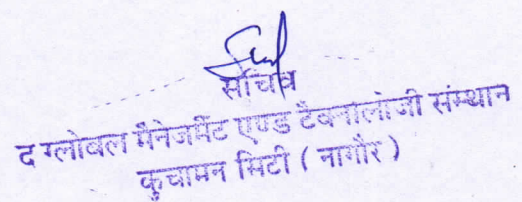 सचिव
द ग्लोबल मैनेजमेंट एण्ड टैक्नोलोजी संस्थान
कुचामन सिटी ( नागौर )